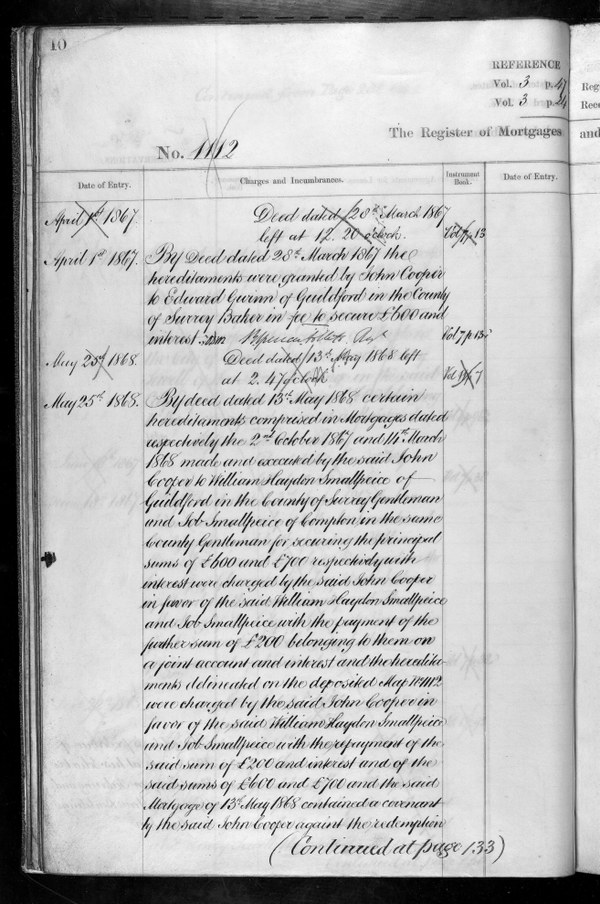 10
REFERENCE
Vol. 3 p. 47
Vol. 3 p. 24
The Register of Mortgages and
No. 1112
Date of Entry.
Charges and Incumbrances.
Instrument Book.
Date of Entry.
April 1st 1867.
Deed dated 28th March 1867
left at 12. 20 o'clock.
Vol 7 p 13
April 1st 1867.
By Deed dated 28th March 1867 the
hereditaments were granted by John Cooper
to Edward Gwinn of Guildford in the County
of Surrey Baker in fee to secure £600 and
interest
Vol 7 p 13
May 25th 1868.
Deed dated 13th May 1868 left
at 2. 47 o'clock
May 25th 1868.
By deed dated 13th May 1868 certain
hereditaments comprised in Mortgages dated
respectively the 2nd October 1867 and 14th March
1868 made and executed by the said John
Cooper to William Haydon Smallpeice of
Guildford in the County of Surrey Gentleman
and Job Smallpeice of Compton in the same
County Gentleman for securing the principal
sums of £600 and £700 respectively with
interest were charged by the said John Cooper
in favor of the said William Haydon Smallpeice
and Job Smallpeice with the payment of the
further sum of £200 belonging to them on
a joint account and interest and the heredita-
ments delineated on the deposited Map No 1112
were charged by the said John Cooper in
favor of the said William Haydon Smallpeice
and Job Smallpeice with the repayment of the
said sum of £200 and interest and of the
said sums of £600 and £700 and the said
Mortgage of 13th May 1868 contained a covenant
by the said John Cooper against the redemption
(Continued at page 133)